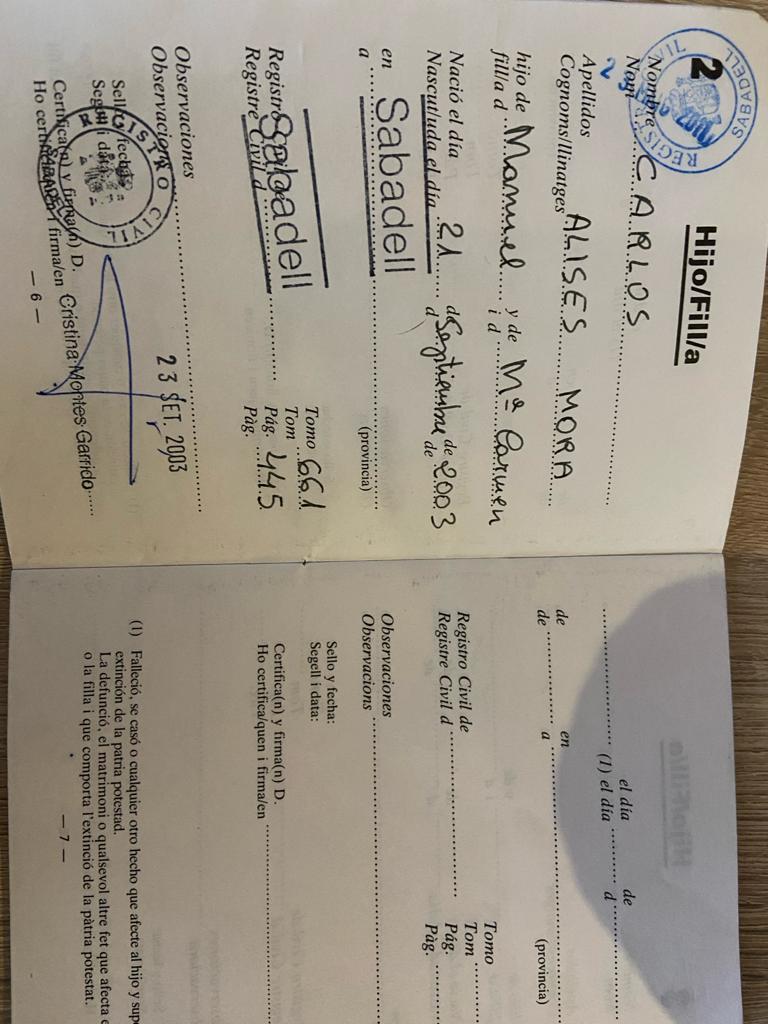 SABADELL
REGISTRO CIVIL
2
Hijo/Fill/a
Nombre
Nom CARLOS
Apellidos
Cognoms/llinatges ALISES MORA
hijo de Manuel y de Mª Carmen
fill/a d i d
Nació el día 21 de Septiembre de 2003
Nascut/uda el día d de
Sabadell
en
a (provincia)
Sabadell
Registro Civil de
Registre Civil d
Tomo 661
Tom
Pág. 445
Pàg.
Observaciones
Observacions
23 SET. 2003
Sello y fecha:
Segell i data:
REGISTRO CIVIL
SABADELL
Certifica(n) y firma(n) D.
Ho certifica/quen i firma/en Cristina Montes Garrido
— 6 —
Hijo/Fill/a
el día de
(1) el día d
de en
de a (provincia)
Registro Civil de
Registre Civil d
Tomo
Tom
Pág.
Pàg.
Observaciones
Observacions
Sello y fecha:
Segell i data:
Certifica(n) y firma(n) D.
Ho certifica/quen i firma/en
(1) Falleció, se casó o cualquier otro hecho que afecte al hijo y
extinción de la patria potestad.
La defunció, el matrimoni o qualsevol altre fet que afecta
o la filla i que comporta l'extinció de la pàtria potestat.
— 7 —